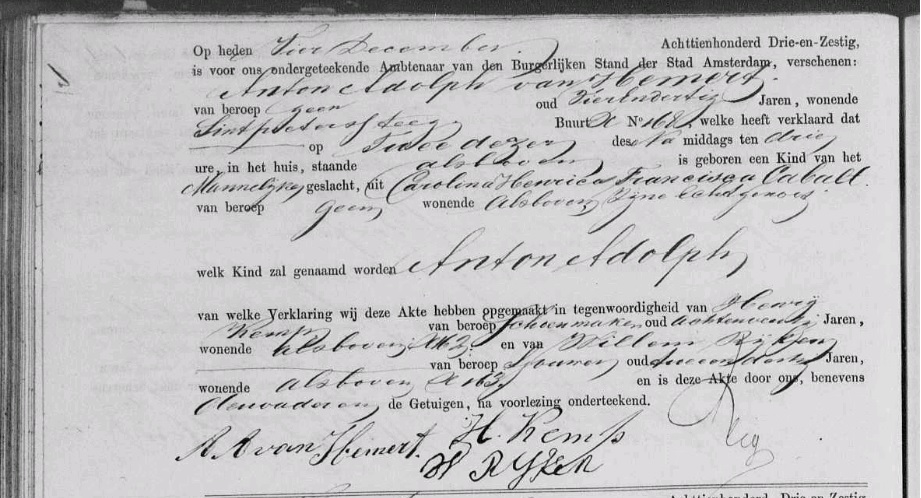 Op heden Vier December. Achttienhonderd Drie-en-Zestig,
is voor ons ondergeteekende Ambtenaar van den Burgerlijken Stand der Stad Amsterdam, verschenen:
Anton Adolph van Hemert.
van beroep geen oud Vierendertig Jaren, wonende
Sint pieters steeg Buurt N° 162, welke heeft verklaard dat
op Twee dezer des Na middags ten drie
ure, in het huis, staande alsboven is geboren een Kind van het
Mannelijke geslacht, uit Carolina Henrica Francisca Caball
van beroep geen wonende Alsboven, Zijne Echtgenoot
welk Kind zal genaamd worden Anton Adolph
van welke Verklaring wij deze Akte hebben opgemaakt in tegenwoordigheid van
Kemp van beroep Schoenmaker oud Jaren,
wonende alsboven, en van Willem Rijken
van beroep oud Jaren,
wonende alsboven en is deze Akte door ons, benevens
den vader en de Getuigen, na voorlezing onderteekend.
A A van Hemert. H. Kemp
W Rijken
Achttienhonderd Drie-en-Zestig